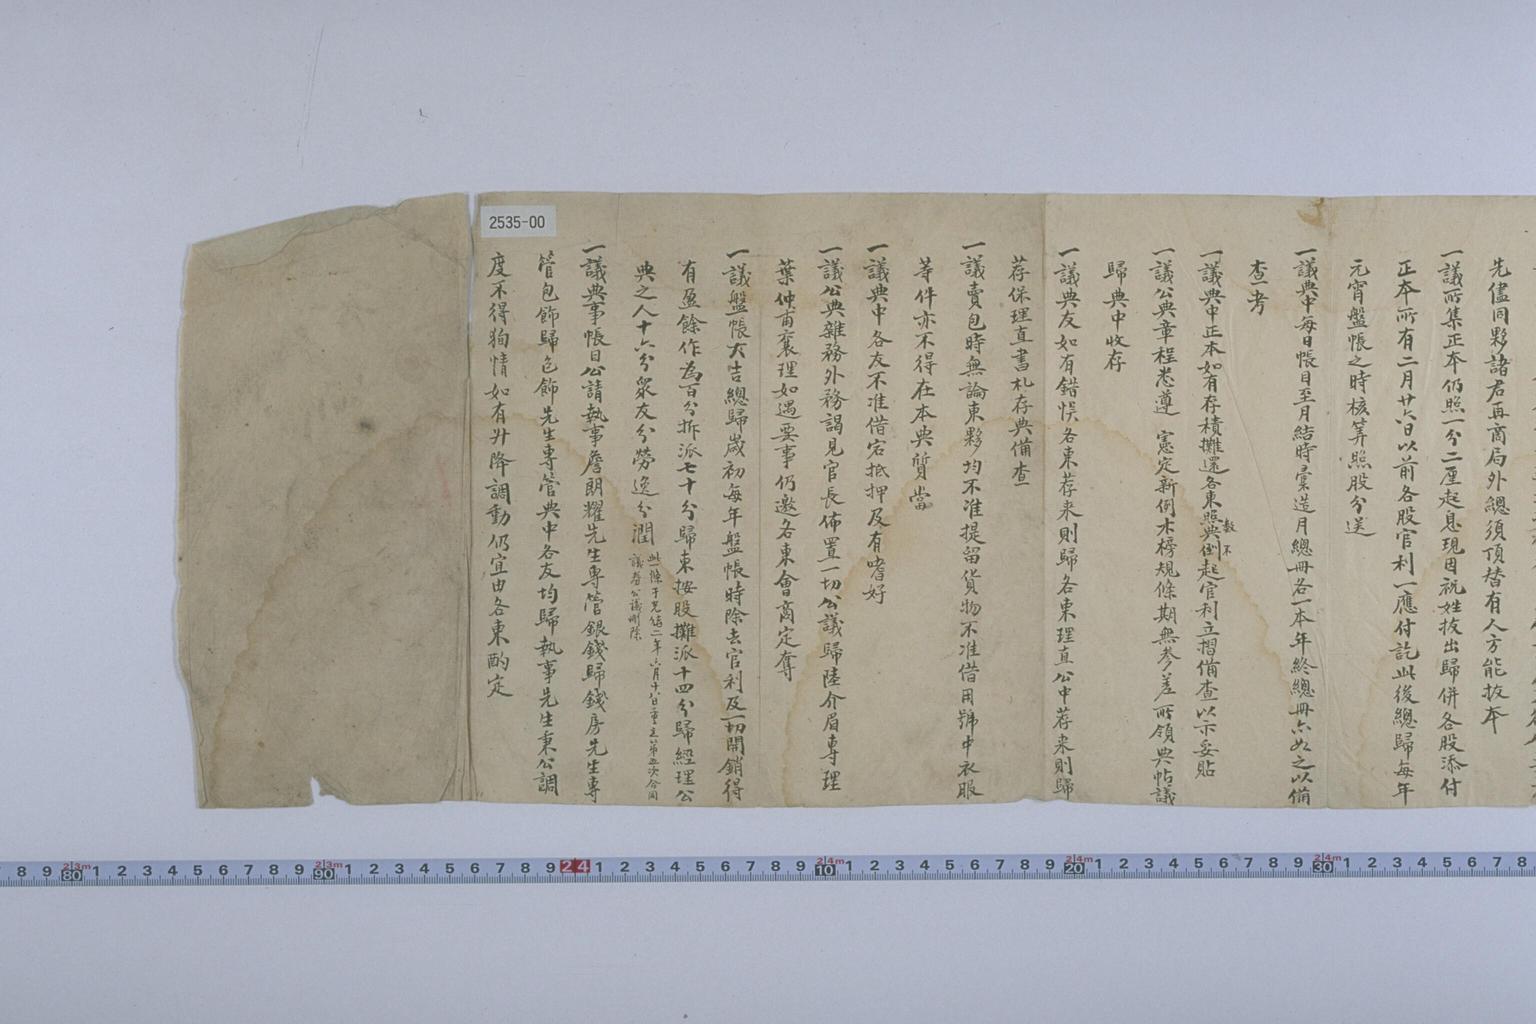 先儘同夥諸君再商局外總須頂替有人方能拔本
一議所集正本仍照一分二厘起息現因祝姓拔出歸併各股添付
正本所有二月廿六日以前各股官利一應付訖此後總歸每年
元宵盤帳之時核算照股分送
一議典中每日帳目至月結時彙造月總冊各一本年終總冊亦如之以備
查考
一議典中正本如有存積攤還各東照典數不倒起官利立摺備查以示妥貼
一議公典章程悉遵 憲定新例木榜規條期無參差所領典帖議
歸典中收存
一議典友如有錯悞各東荐来則歸各東理直公中荐来則歸
荐保理直書札存典備查
一議賣包時無論東夥均不准提留貨物不准借用號中衣服
等件亦不得在本典質當
一議典中各友不准借宕抵押及有嗜好
一議公典雜務外務謁見官長佈置一切公議歸陸介眉專理
葉仲甫襄理如遇要事仍邀各東會商定奪
一議盤帳大吉總歸歲初每年盤帳時除去官利及一切開銷得
有盈餘作為百分拆派七十分歸東按股攤派十四分歸經理公
典之人十六分衆友分勞逸分潤
此一條于光緒二年六月十八日重立第五次合同
議荅公議刪除
一議典事帳目公請執事詹朗耀先生專管銀錢歸錢房先生專
管包飾歸包飾先生專管典中各友均歸執事先生秉公調
度不得狥情如有升降調動仍宜由各東酌定
2535-00